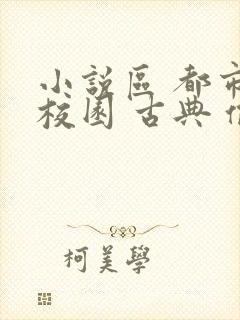 小說區 都市
校園 古典
柯美學